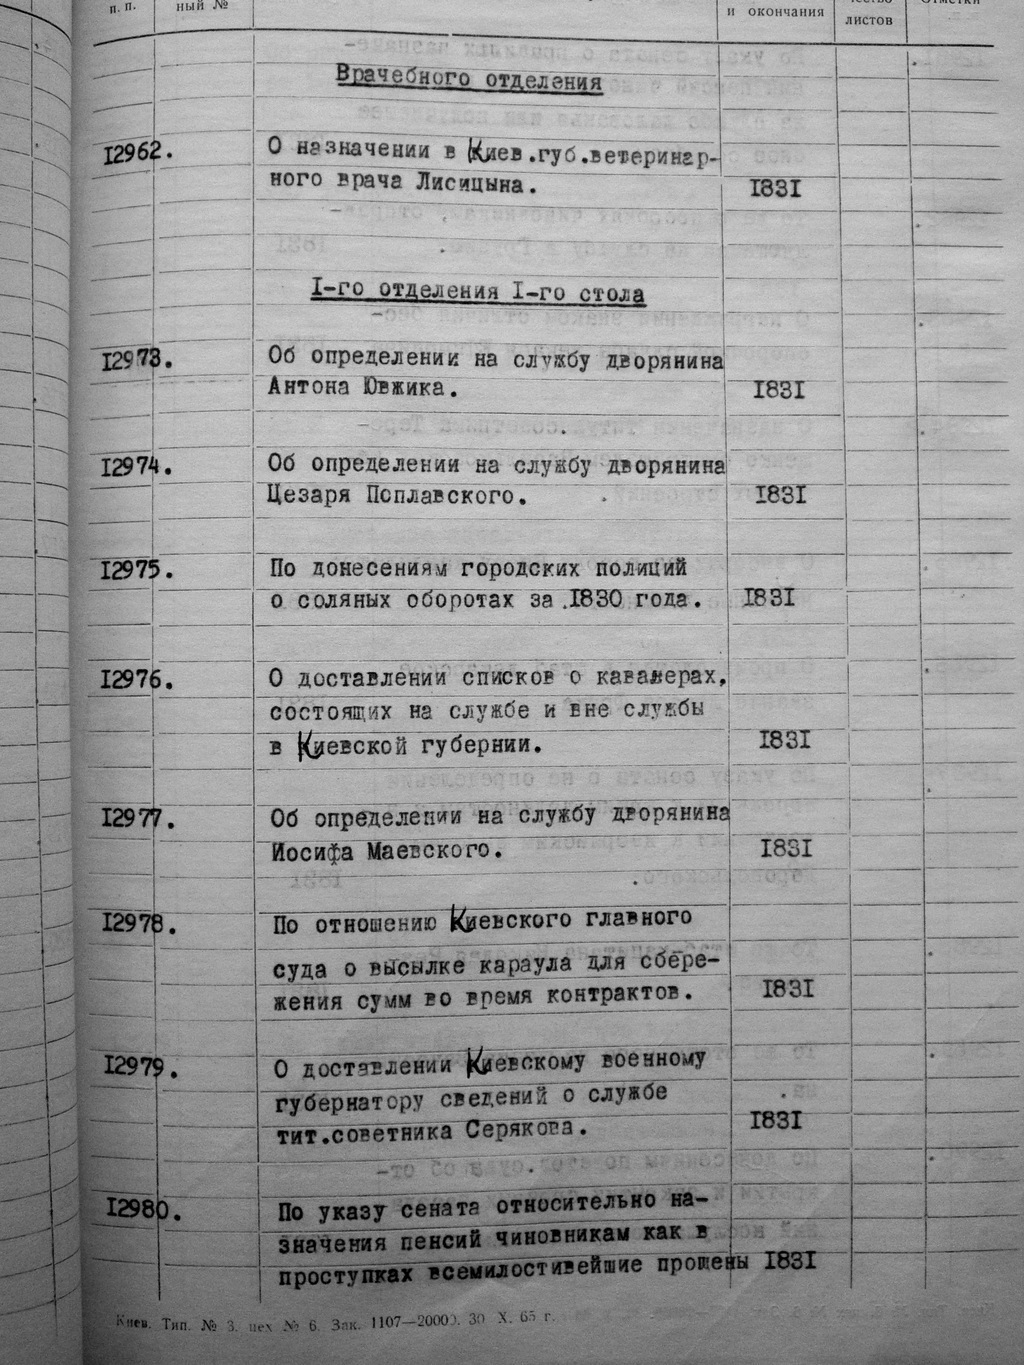 п. п.
ный №
и окончания
листов
Врачебного отделения
12962.
О назначении в Киев.губ.ветеринар-
ного врача Лисицына.
1831
I-го отделения I-го стола
12973.
Об определении на службу дворянина
Антона Ювжика.
1831
12974.
Об определении на службу дворянина
Цезаря Поплавского.
1831
12975.
По донесениям городских полиций
о соляных оборотах за 1830 года.
1831
12976.
О доставлении списков о кавалерах,
состоящих на службе и вне службы
в Киевской губернии.
1831
12977.
Об определении на службу дворянина
Иосифа Маевского.
1831
12978.
По отношению Киевского главного
суда о высылке караула для сбере-
жения сумм во время контрактов.
1831
12979.
О доставлении Киевскому военному
губернатору сведений о службе
тит.советника Серякова.
1831
12980.
По указу сената относительно на-
значения пенсий чиновникам как в
проступках всемилостивейшие прощены 1831
Киев. Тип. № 3. цех № 6. Зак. 1107—20000. 30 X. 65 г.